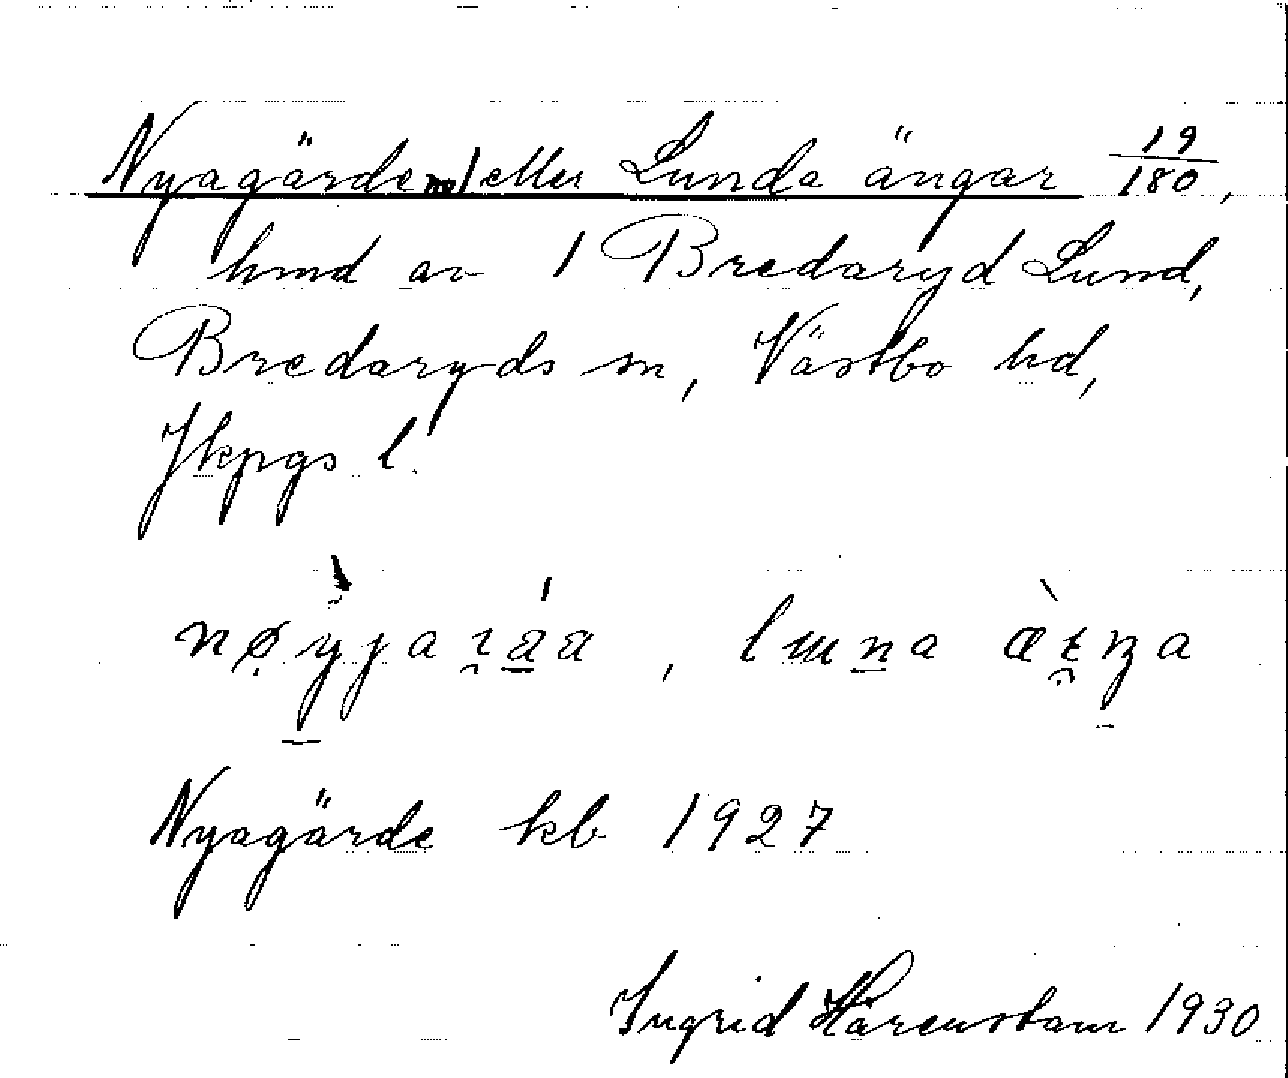 Nyagärden/eller Lunda ängar 19/180,
hmd av 1 Bredaryd Lund,
Bredaryds sn, Västbo hd,
Jkpgs l.
Nyagärde kb 1927
Ingrid Härenstam 1930